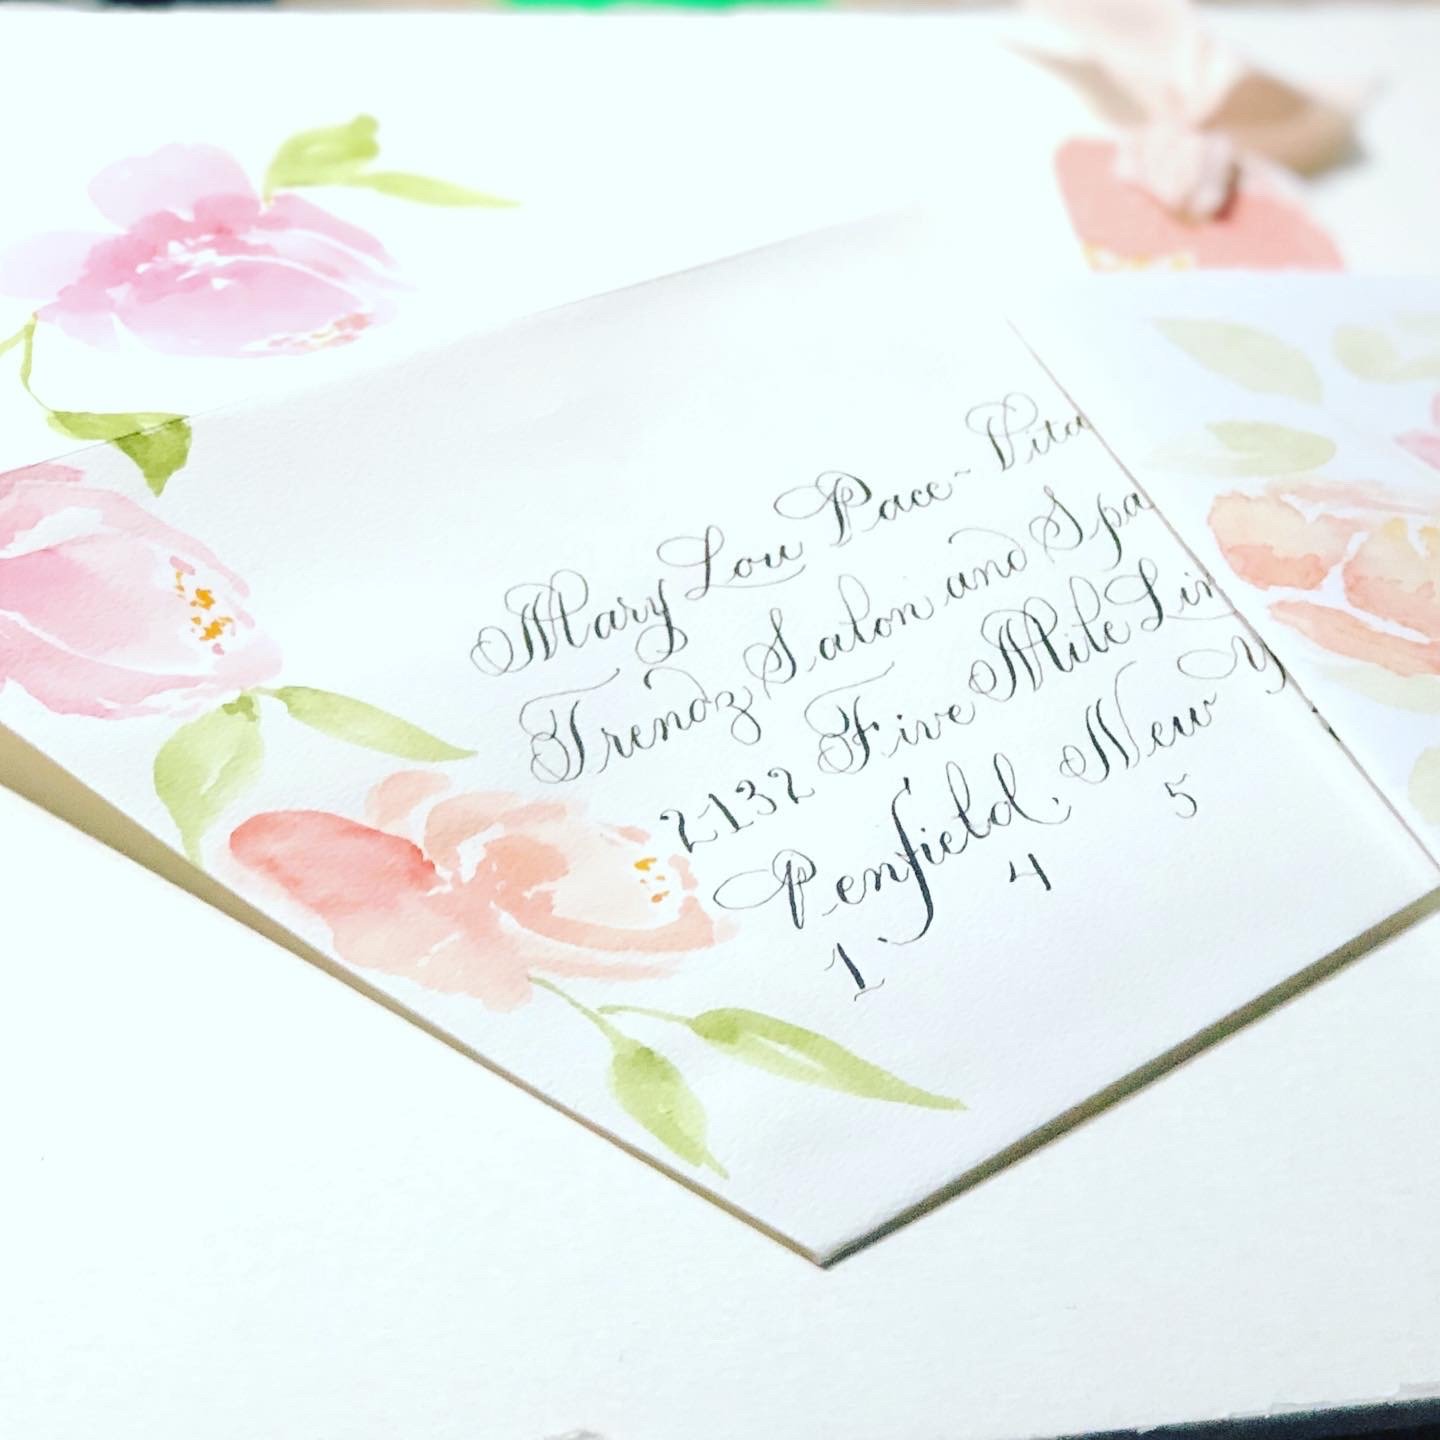 Mary Lou Pace~Vita
Trendz Salon and Spa
2132 Five Mile Lin
Penfield, New Y
1 4 5